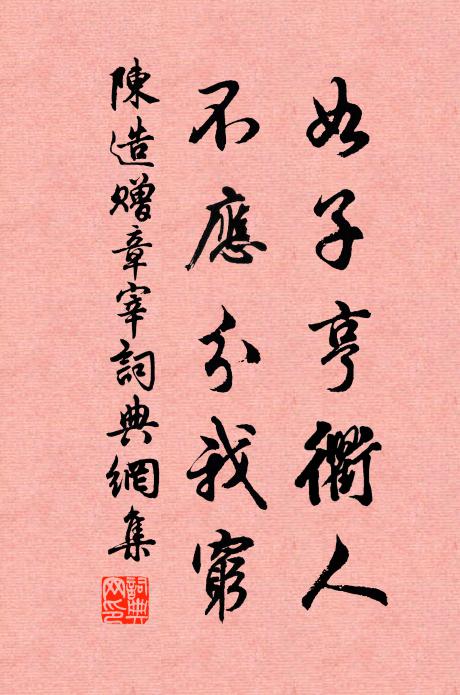 如子亨衢人
不應分我窮
陳造贈章宰詞典網集
詞典网印